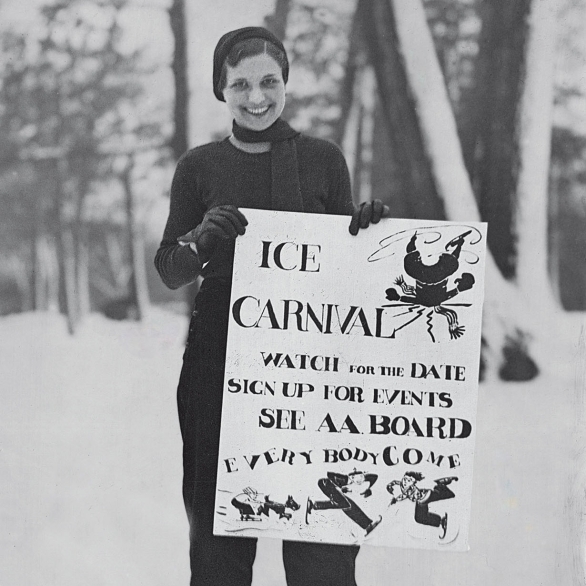 ICE
CARNIVAL
WATCH FOR THE DATE
SIGN UP FOR EVENTS
SEE AA BOARD
EVERY BODY COME